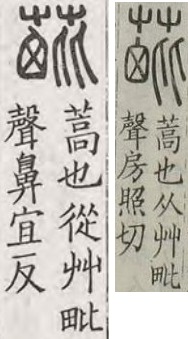 蒿也從艸毗
聲鼻宜反
蒿也从艸毗
聲房照切